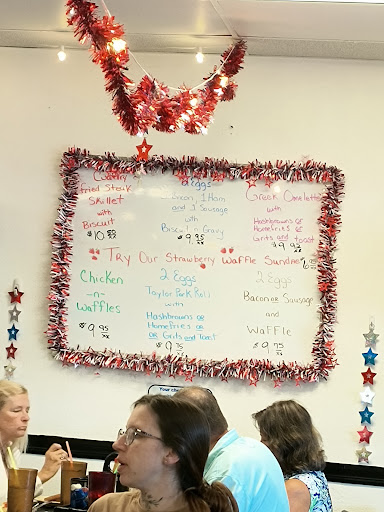 Country
Fried Steak
Skillet
with
Biscuit
$10
2 Eggs
1 Ham
and 2 Sausage
with
Biscuit n Gravy
$9.95
Greek Omelette
with
Hashbrowns or
Homefries or
Grits and toast
$9.95
Try Our Strawberry Waffle Sundae
Chicken
-n-
Waffles
$9.95
2 Eggs
Taylor Pork Roll
with
Hashbrowns or
Homefries or
or Grits and Toast
$9.75
2 Eggs
Bacon or Sausage
and
Waffle
$9.95